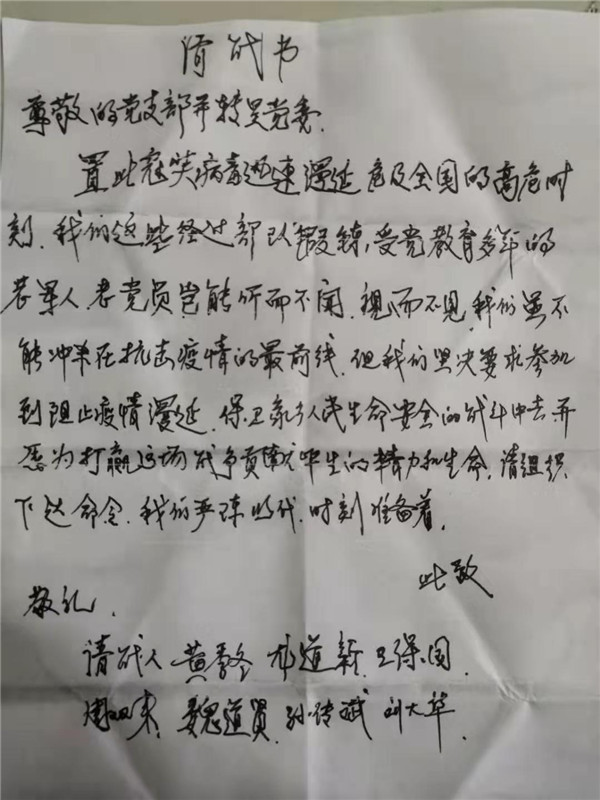 请战书
尊敬的党支部并转吴党委.
置此冠状病毒迅速漫延危及全国的高危时
刻.我们这些经过部队锻练,受党教育多年的
老军人.老党员岂能听而不闻.视而不见,我们虽不
能冲杀在抗击疫情的最前线.但我们坚决要求参加
到阻止疫情漫延.保卫家乡人民生命安全的战斗中去并
愿为打赢这场战争贡献毕生的精力和生命,请组织
下达命令.我们严阵以代.时刻准备着.
此致
敬礼.
请战人 黄 道新.卫保国.
周 来.魏道 孙传斌 刘大华.